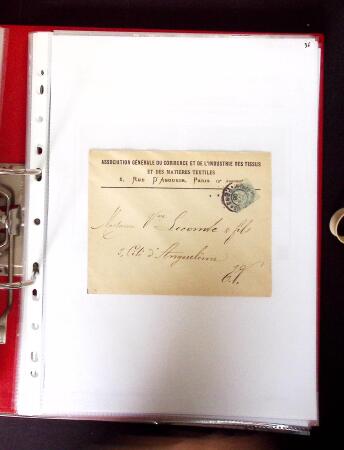 36
ASSOCIATION GÉNÉRALE DU COMMERCE ET DE L'INDUSTRIE DES TISSUS
ET DES MATIÈRES TEXTILES
8, RUE D'ABOUKIR, PARIS
Madame Vve Lecomte & fils
3, Cité d'Angoulème
E.V.